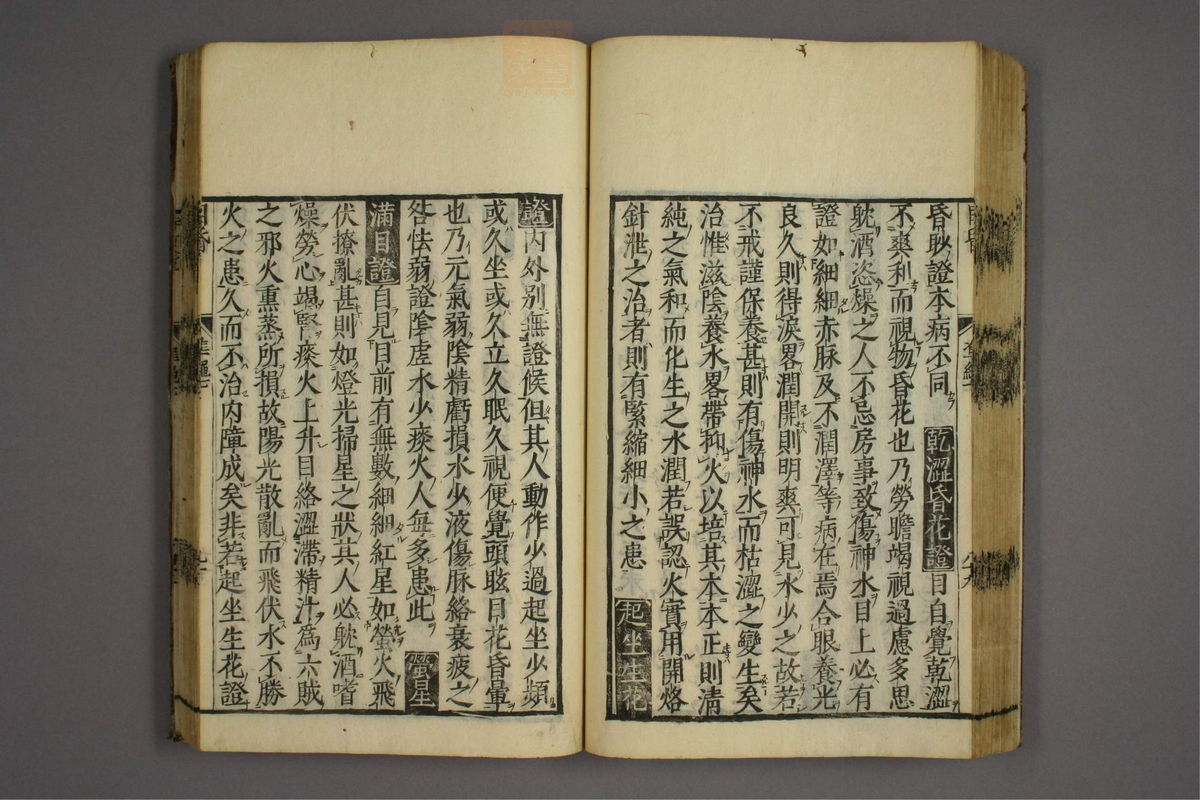 昏眇證本病不同 乾澀昏花證 目自覺乾澀
不爽利而視物昏花也乃勞瞻竭視過慮多思
躭酒恣燥之人不忌房事致傷神水目上必有
證如細細赤脉及不潤澤等病在焉合眼養光
良久則得淚畧潤開則明爽可見水少之故若
不戒謹保養甚則有傷神水而枯澀之變生矣
治惟滋陰養水畧帶抑火以培其本本正則清
純之氣和而化生之水潤若誤認火實用開烙
針泄之治者則有緊縮細小之患 起坐生花
證 內外別無證候但其人動作少過起坐少頻
或久坐或久立久眠久視便覺頭眩目花昏暈
也乃元氣弱陰精虧損水少液傷脉絡衰疲之
咎怯弱證陰虛水少痰火人每多患此 螢星
滿目證 自見目前有無數細細紅星如螢火飛
伏撩亂甚則如燈光掃星之狀其人必躭酒嗜
燥勞心竭腎痰火上升目絡澀滯精汁為六賊
之邪火熏蒸所損故陽光散亂而飛伏水不勝
火之患久而不治內障成矣非若起坐生花證